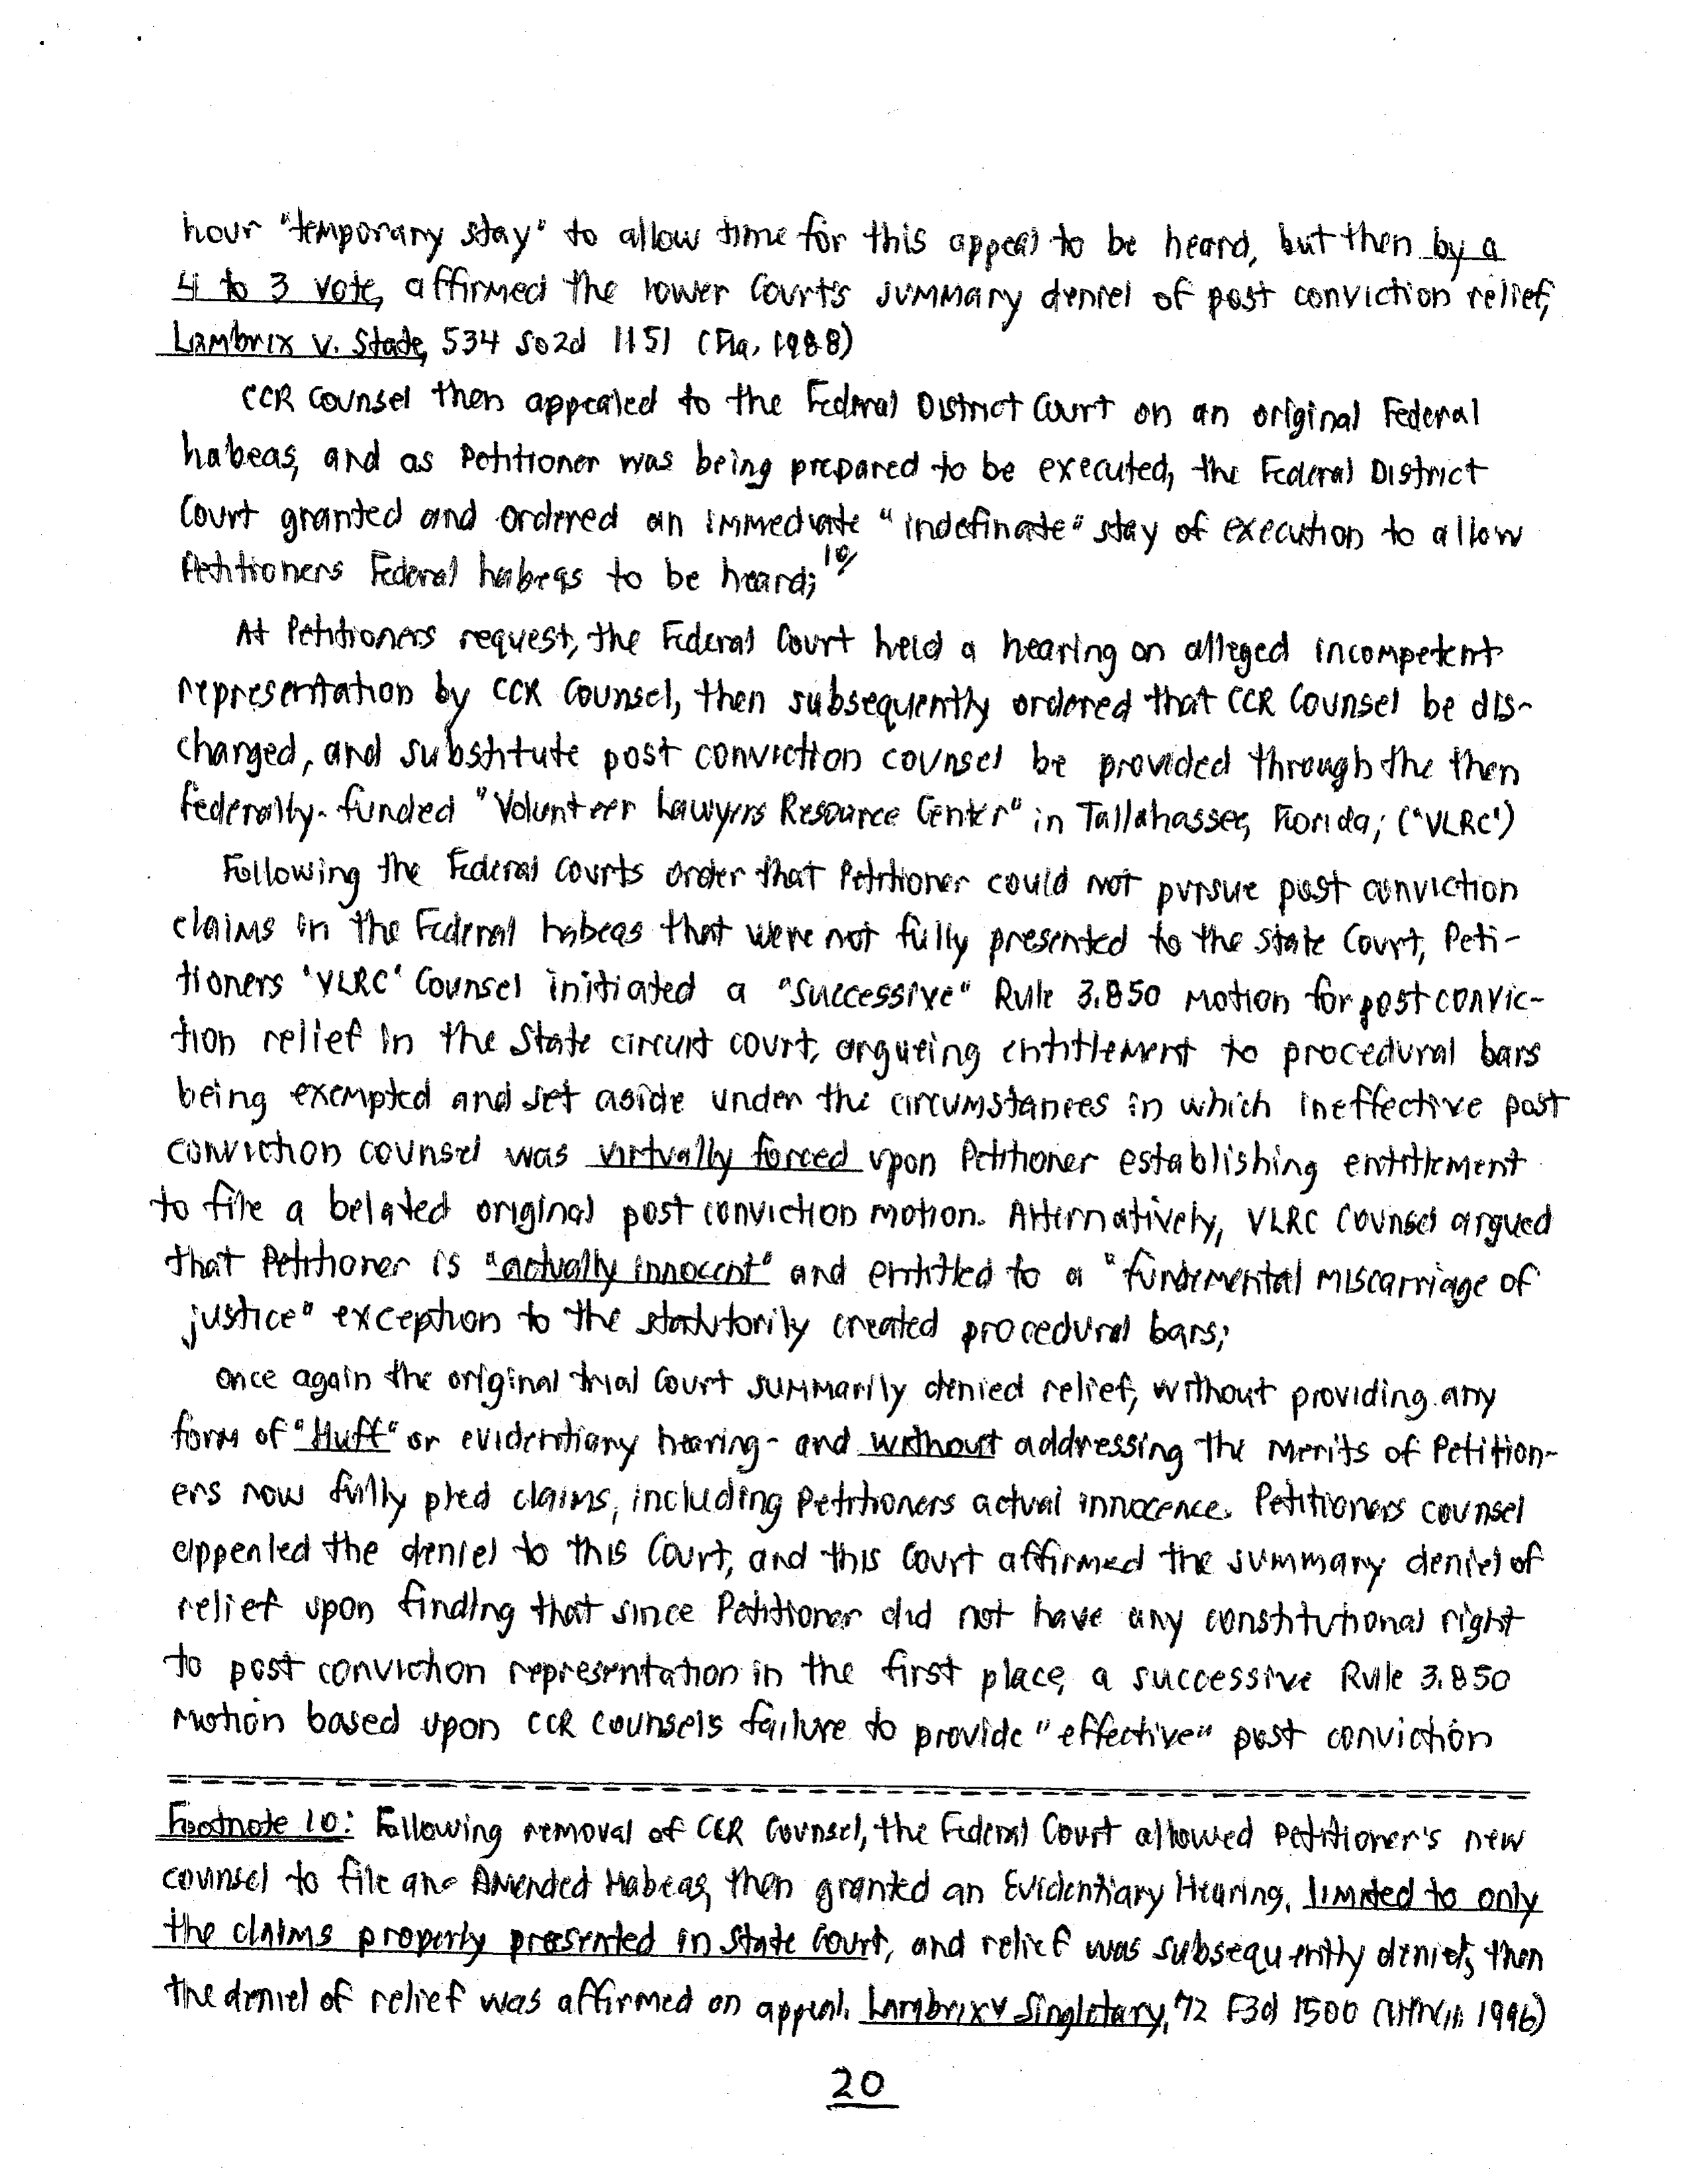 hour "temporary stay" to allow time for this appeal to be heard, but then by a
4 to 3 vote, affirmed the lower Court's summary deniel of post conviction relief,
Lambrix v. State, 534 So2d 1151 (Fla, 1988)
CCR Counsel then appealed to the Federal District Court on an original Federal
habeas, and as Petitioner was being prepared to be executed, the Federal District
Court granted and ordered an immediate "indefinate" stay of execution to allow
Petitioners Federal habeas to be heard; 10/
At Petitioners request, the Federal Court held a hearing on alleged incompetent
representation by CCR Counsel, then subsequently ordered that CCR Counsel be dis-
charged, and substitute post conviction counsel be provided through the then
federally-funded "Volunteer Lawyers Resource Center" in Tallahassee, Florida; ("VLRC")
Following the Federal Courts order that Petitioner could not pursue post conviction
claims in the Federal habeas that were not fully presented to the State Court, Peti-
tioners 'VLRC' Counsel initiated a "successive" Rule 3.850 Motion for post convic-
tion relief in the State circuit court, argueing entitlement to procedural bars
being exempted and set aside under the circumstances in which ineffective post
conviction counsel was virtually forced upon Petitioner establishing entitlement
to file a belated original post conviction motion. Alternatively, VLRC Counsel argued
that Petitioner is "actually innocent" and entitled to a "fundemental miscarriage of
justice" exception to the statutorily created procedural bars;
Once again the original trial Court summarily denied relief, without providing any
form of "Huff" or evidentiary hearing - and without addressing the merits of Petition-
ers now fully pled claims, including Petitioners actual innocence. Petitioners counsel
appealed the deniel to this Court, and this Court affirmed the summary deniel of
relief upon finding that since Petitioner did not have any constitutional right
to post conviction representation in the first place, a successive Rule 3.850
Motion based upon CCR Counsels failure to provide "effective" post conviction
Footnote 10: Following removal of CCR Counsel, the Federal Court allowed Petitioner's new
counsel to file an Amended Habeas, then granted an Evidentiary Hearing, limited to only
the claims properly presented in State Court, and relief was subsequently denied, then
the deniel of relief was affirmed on appeal. Lambrix v Singletary, 72 F3d 1500 1996)
20